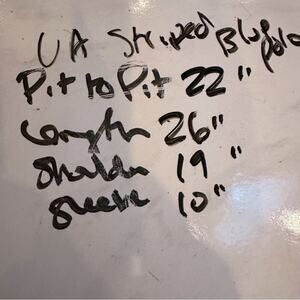 UA Striped Blue polo
Pit to Pit 22"
Length 26"
Shoulder 19"
Sleeve 10"